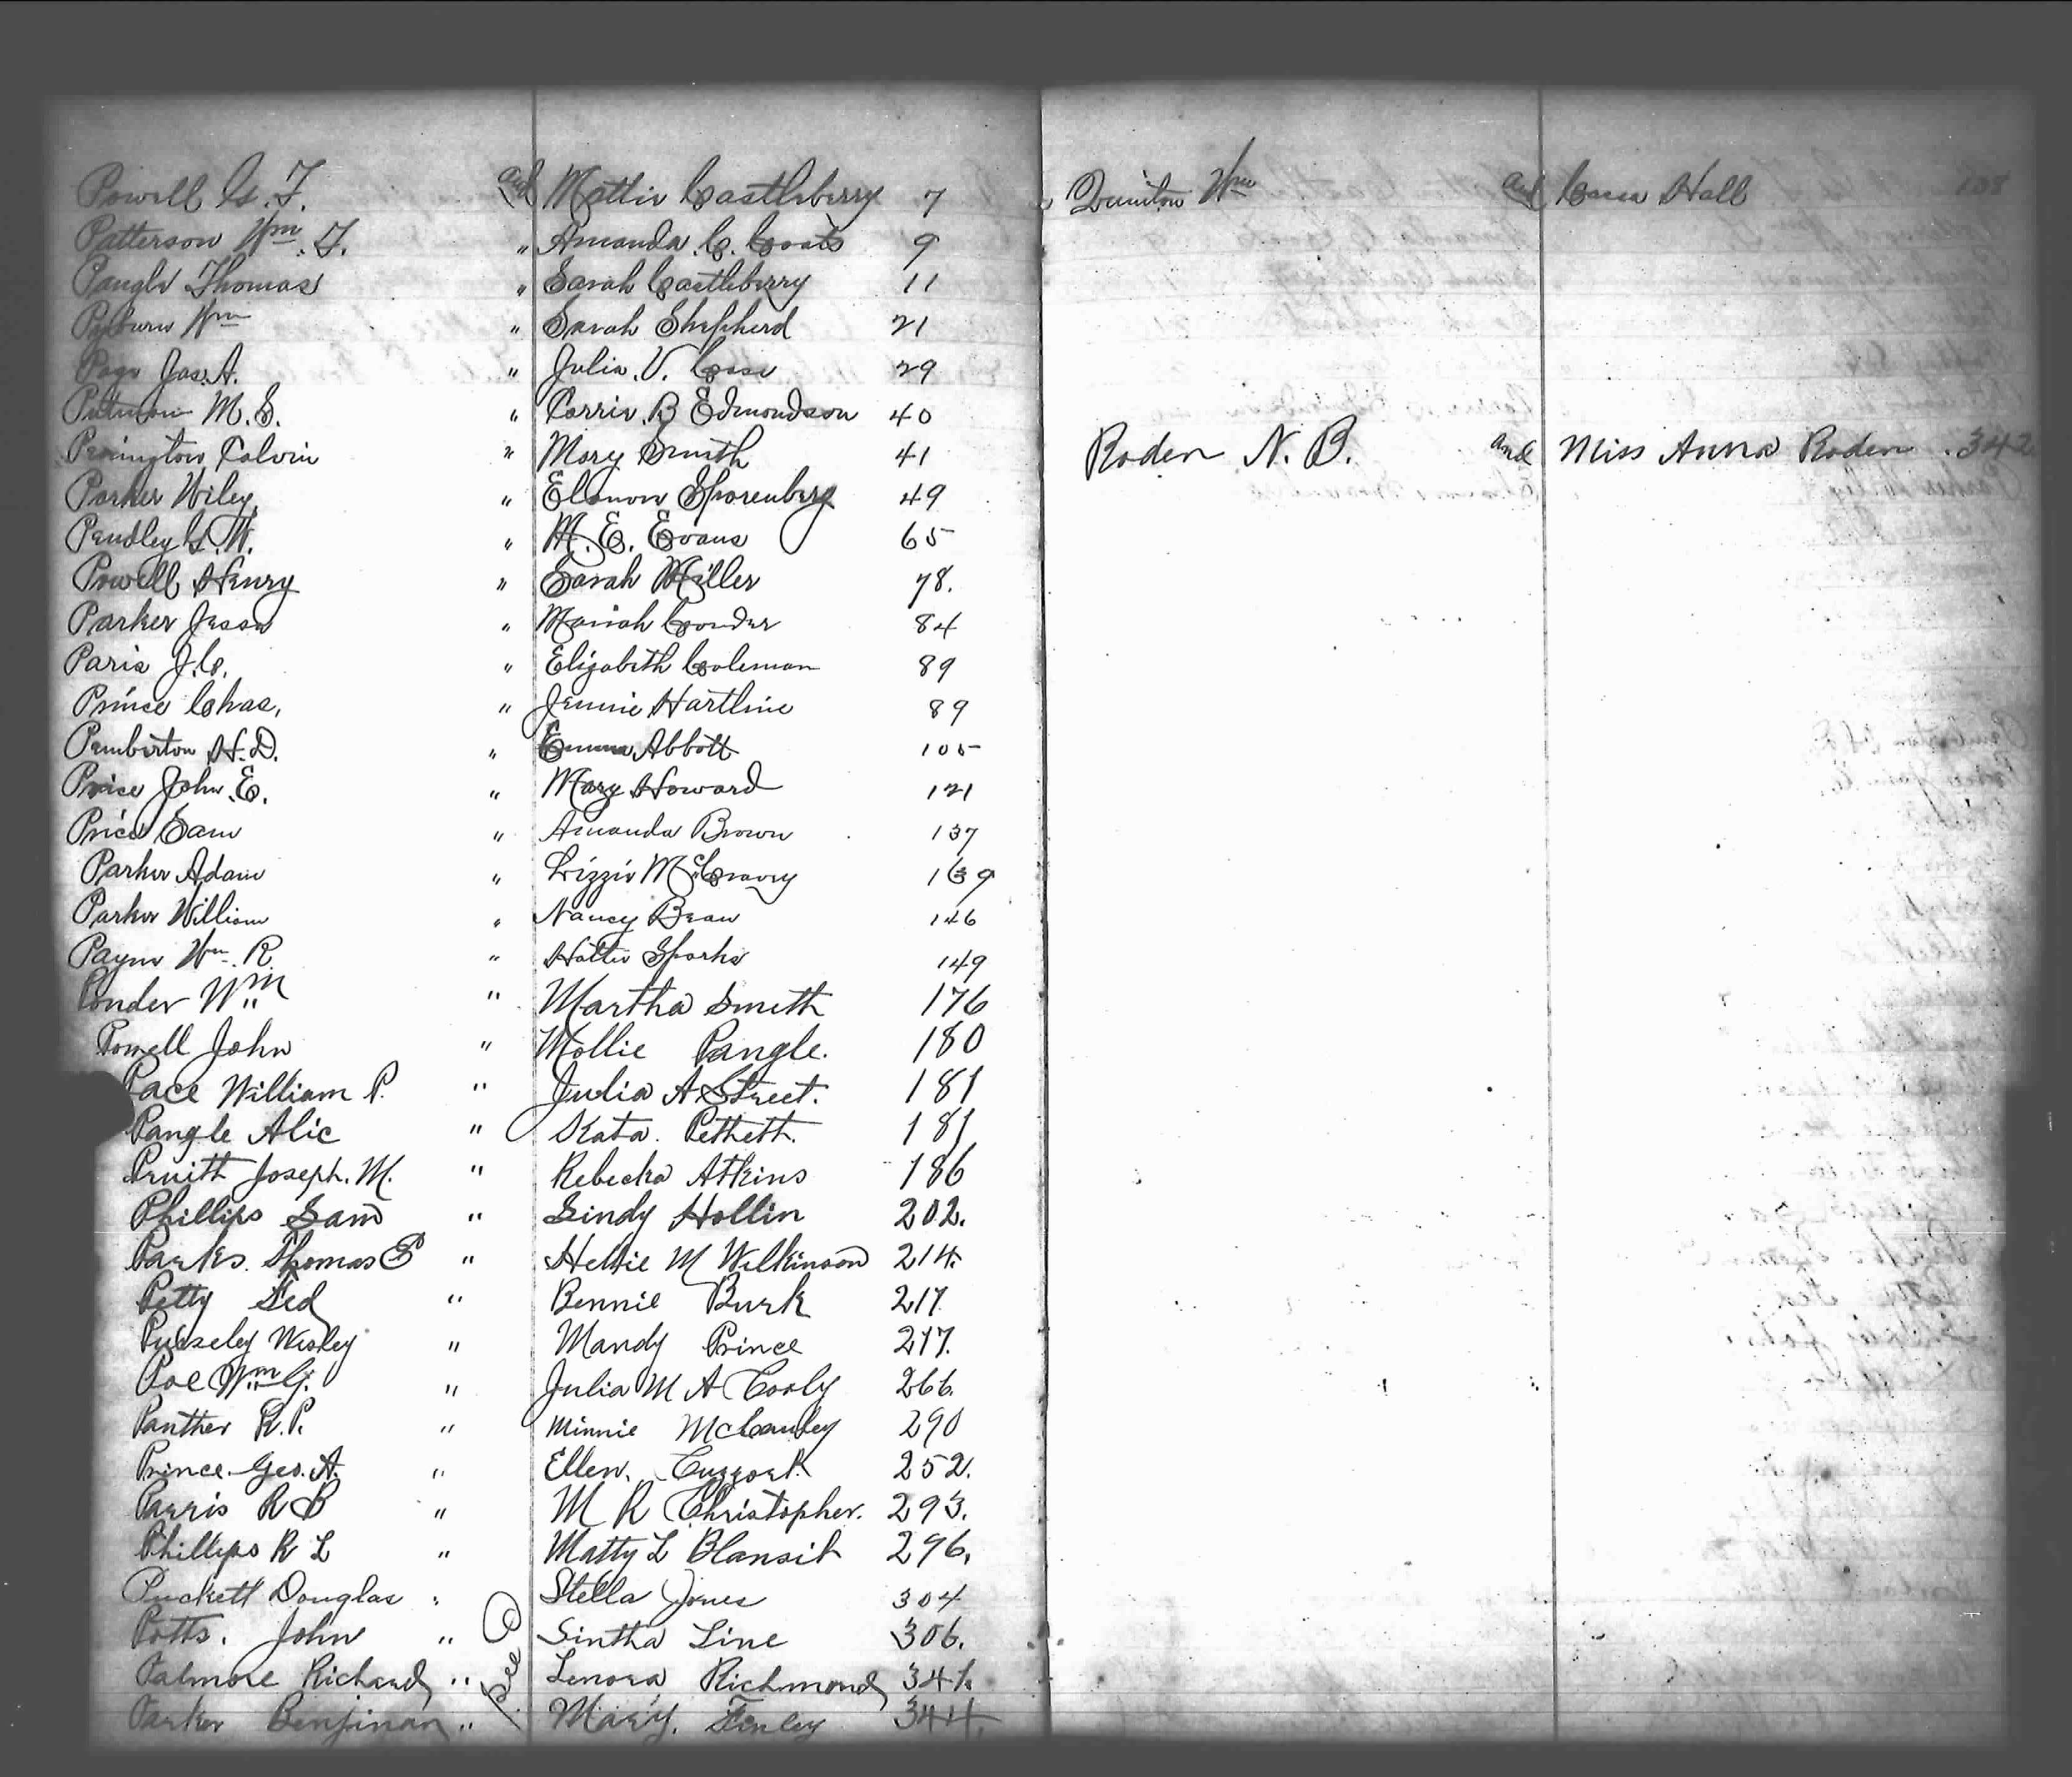 Powell G. F. and Mattie Castleberry 7
Patterson Wm. F. " Amanda C. Coats 9
Pangle Thomas " Sarah Castleberry 11
Pyburn Wm " Sarah Shepherd 21
Page Jas. A. " Julia. V. Case 29
Putman M. S. " Carrie. B Edmondson 40
Penington Calvin " Mary Smith 41
Parker Wiley " Elanor Sparenberg 49
Pendley G. W. " M. E. Evans 65
Powell Henry " Sarah Miller 78.
Parker Jesse " Mariah Conder 84
Paris J. C. " Elizabeth Coleman 89
Prince Chas, " Jennie Hartline 89
Pemberton H. D. " Emma Abbott 105
Price John. E. " Mary Howard 121
Price Sam " Amanda Brown 137
Parker Adam " Lizzie McCravy 139
Parker William " Nancy Bean 146
Payne Wm. R. " Hattie Sparks 149
Ponder Wm " Martha Smith 176
Powell John " Mollie Pangle. 180
Pace William P. " Julia A Street. 181
Pangle Alic " Kata. 181
Pruitt Joseph. M. " Rebecka Atkins 186
Phillips Sam " Lindy Hollin 202.
Parks. Thomas P " M Wilkinson 214.
Petty Ted " Bennie Burk 217.
Wesley " Mandy Prince 217.
Poe Wm G. " Julia M A Cooly 266.
Panther R. P. " Minnie McCauley 290
Prince. Geo. A. " Ellen. Cuzzort. 252.
Parris R B " M R Christopher. 293.
Phillips R L " Matty L Blansit 296.
Puckett Douglas " Stella Jones 304
Potts. John " Sintha Line 306.
Palmore Richard " Lenora Richmond 341.
Parker Benjiman " Mary. Finley 344.
See
Quinton Wm and Hall 108
Roden N. B. and Miss Anna Roden . 342